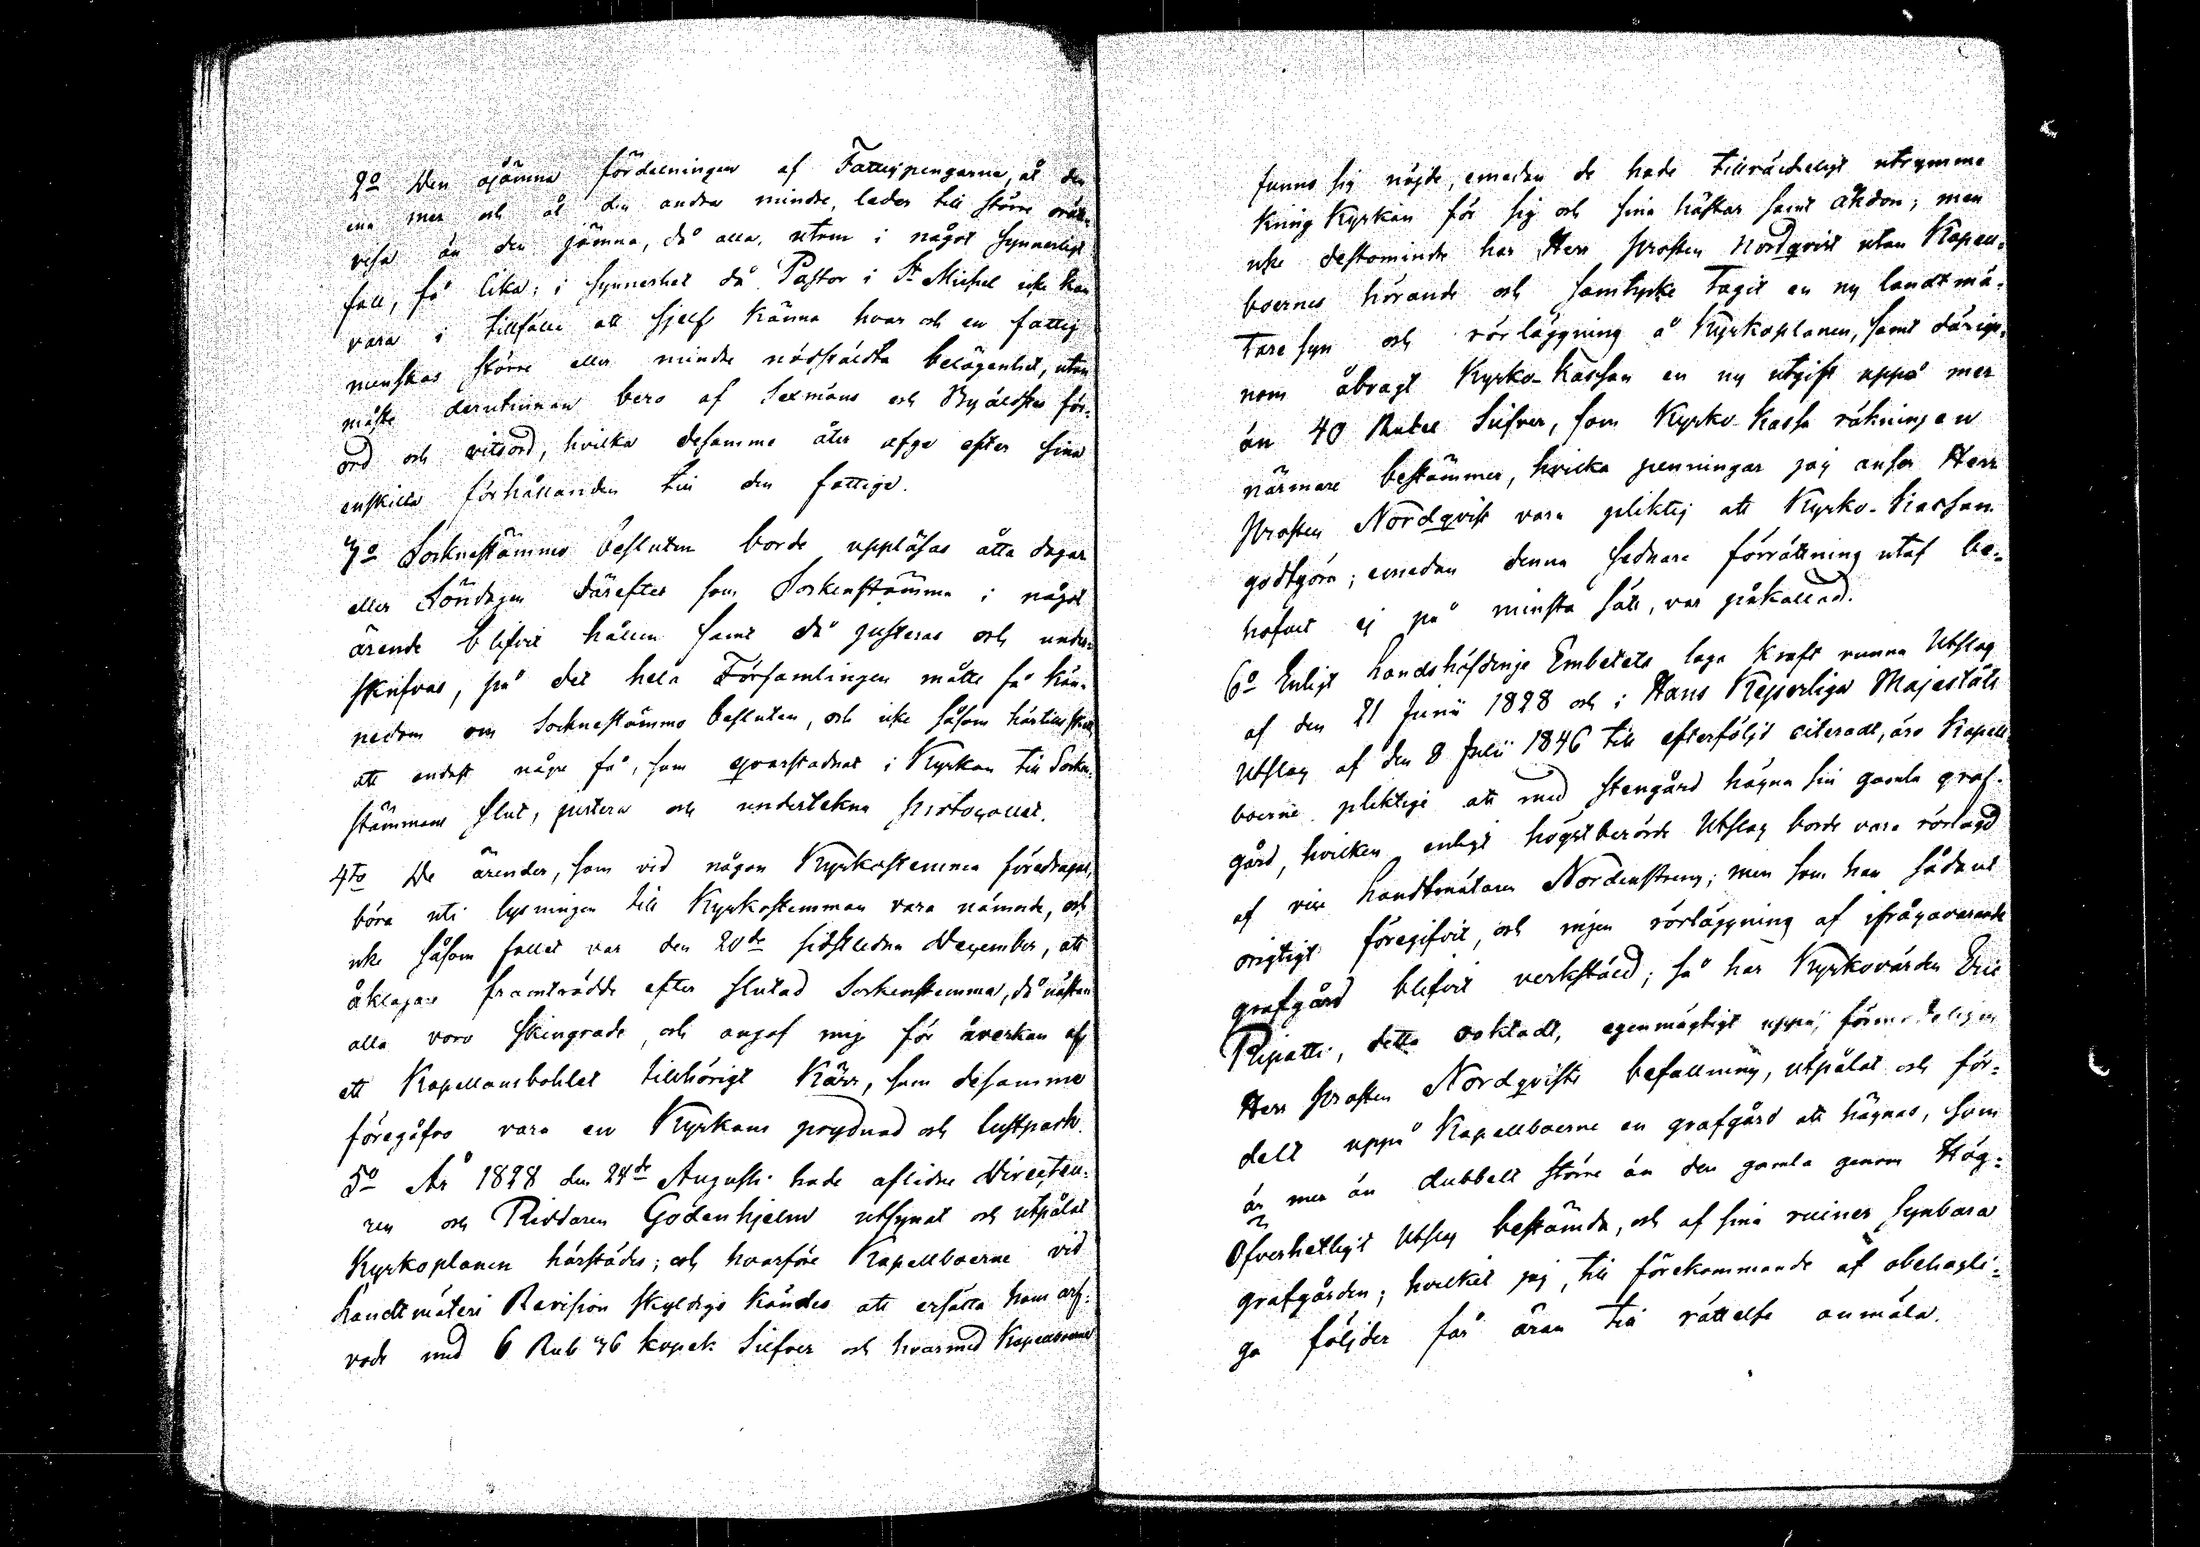 2o Den ojämna fördelningen af Fattigpengarne, åt den
ena mer och åt den andra mindre, leder till större orätt-
visa än den jämna, då alla, utom i något synnerligt
fall, få lika; i synnerhet då Pastor i St Michel icke kan
vara i tillfälle att sjelf känna hvar och en fattig
menskas större eller mindre nödstäldta belägenhet, utan
måste derutinnan bero af Sexmäns och Byåldstes för-
ord och vitsord, hvilka desamme åter afge efter sina
enskilta förhållanden till den fattige.
3o Socknestämmo besluten borde uppläsas åtta dagar
eller Söndagen därefter som Sockenstämma i något
ärende blifvit hållen samt då justeras och under-
skrifvas, på det hela Församlingen måtte få kän-
nedom om Socknestämmo besluten, och icke såsom härtills skett
att endast några få, som qvarstadnat i Kyrkan till Sockne-
stämmans slut, justera och underteckna protocollet.
4to De ärender, som vid någon Kyrkostemma föredragas,
böra uti lysningen till Kyrkostemman vara nämnde, och
icke såsom fallet var den 20de sidstledne December, att
åklagare framträdde efter slutad Sockenstemma, då nästan
alla voro skingrade, och angaf mig för åverkan af
ett Kapellansbohlet tillhörigt Kärr, som desamme
föregåfvo vara en Kyrkans prydnad och lustpark.
5o År 1828 den 24de Augusti hade aflidne Directeu-
ren och Riddaren Godenhjelm utsynat och utpålat
Kyrkoplanen härstädes; och hvarföre Kapellboerne vid
Landtmäteri Revision skyldige kändes att ersätta hans arf-
vode med 6 Rub 76 kopek Silfver och hvarmed Kapellboerne
funno sig nöjde, emedan de hade tillräckeligt utrymme
kring Kyrkan för sig och sina hästar samt åkdon; men
icke destomindre har Herr Prosten Nordqvist utan Kapell-
boernes hörande och samtycke tagit en ny landtmä-
tare syn och rörläggning å Kyrkoplanen, samt därige-
nom åbragt Kyrko-Kassan en ny utgift uppå mer
än 40 Rubel Silfver, som Kyrko-Kassa räkningen
närmare bestämmer, hvilka penningar jag anser Herr
Prosten Nordqvist vara pliktig att Kyrko-Kassan
godtgöra; emedan denna sednare förrättning utaf be-
hofvet ej på minsta sätt, var påkallad.
6o Enligt Landshöfdinge Embetets laga kraft vunna Utslag
af den 21 Junii 1828 och i Hans Kejserliga Majestäts
Utslag af den 8 Julii 1846 till efterföljd citeradt, äro Kapell-
boerne pliktige att med stengård hägna sin gamla graf-
gård, hvilken enligt högstberörde Utslag borde vara rörlagd
af vice Landtmätaren Nordenstreng; men som han sådant
origtigt föregifvit, och ingen rörläggning af ifrågavarande
grafgård blifvit verkstäld; så har Kyrkovärden Eric
Ripatti, detta oaktadt, egenmägtigt uppå, förmodeligen
Herr Prosten Nordqvists befallning, utpålat och för-
delt uppå Kapellboerne en grafgård att hägnas, som
är mer än dubbelt större än den gamla genom Hög-
Öfverhetligt Utslag bestämda, och af sina ruiner synbara
grafgården; hvilket jag, till förekommande af obehagli-
ga följder får äran till rättelse anmäla.